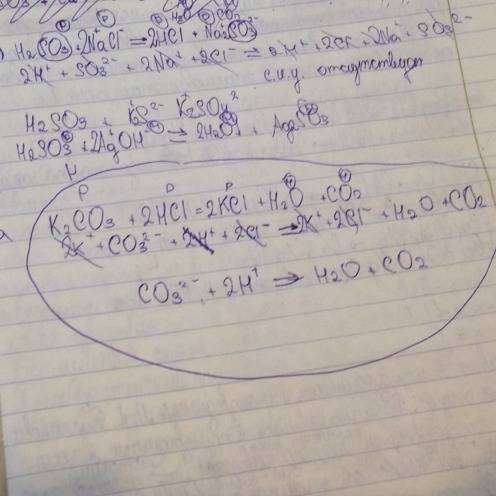 H₂SO₃ + 2NaCl = 2HCl + Na₂SO₃
2H⁺ + SO₃²⁻ + 2Na⁺ + 2Cl⁻ = 2H⁺ + 2Cl⁻ + 2Na⁺ + SO₃²⁻
с.и.у. отсутствует
H₂SO₃ +
H₂SO₃ + 2AgOH = 2H₂O + Ag₂SO₃
Н
Р Р Р Н Н
K₂CO₃ + 2HCl = 2KCl + H₂O + CO₂
2K⁺ + CO₃²⁻ + 2H⁺ + 2Cl⁻ → 2K⁺ + 2Cl⁻ + H₂O + CO₂
CO₃²⁻ + 2H⁺ → H₂O + CO₂